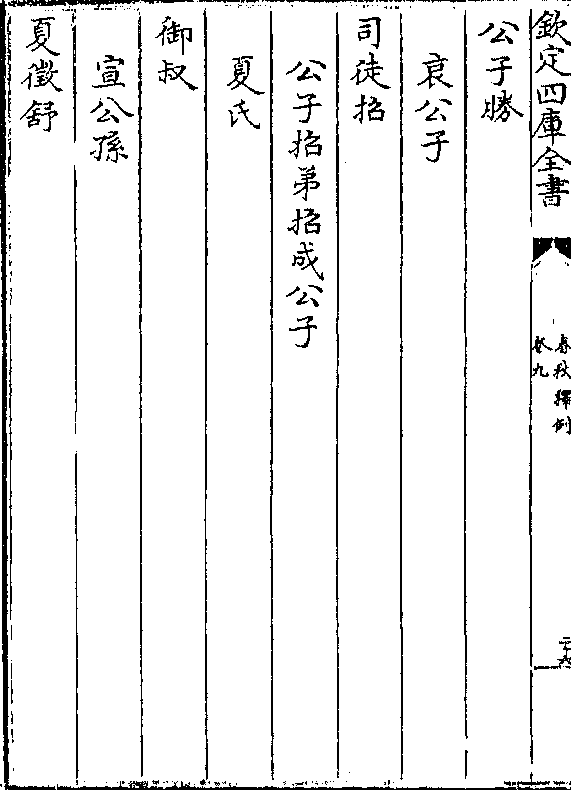 欽定四庫全書
春秋釋例
卷九
公子勝
哀公子
司徒招
公子招弟招成公子
夏氏
御叔
宣公孫
夏徵舒